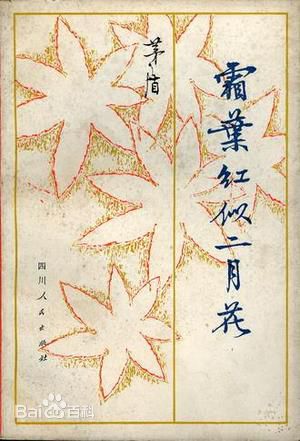 霜葉红似二月花
茅盾
四川人民出版社
Bai百科